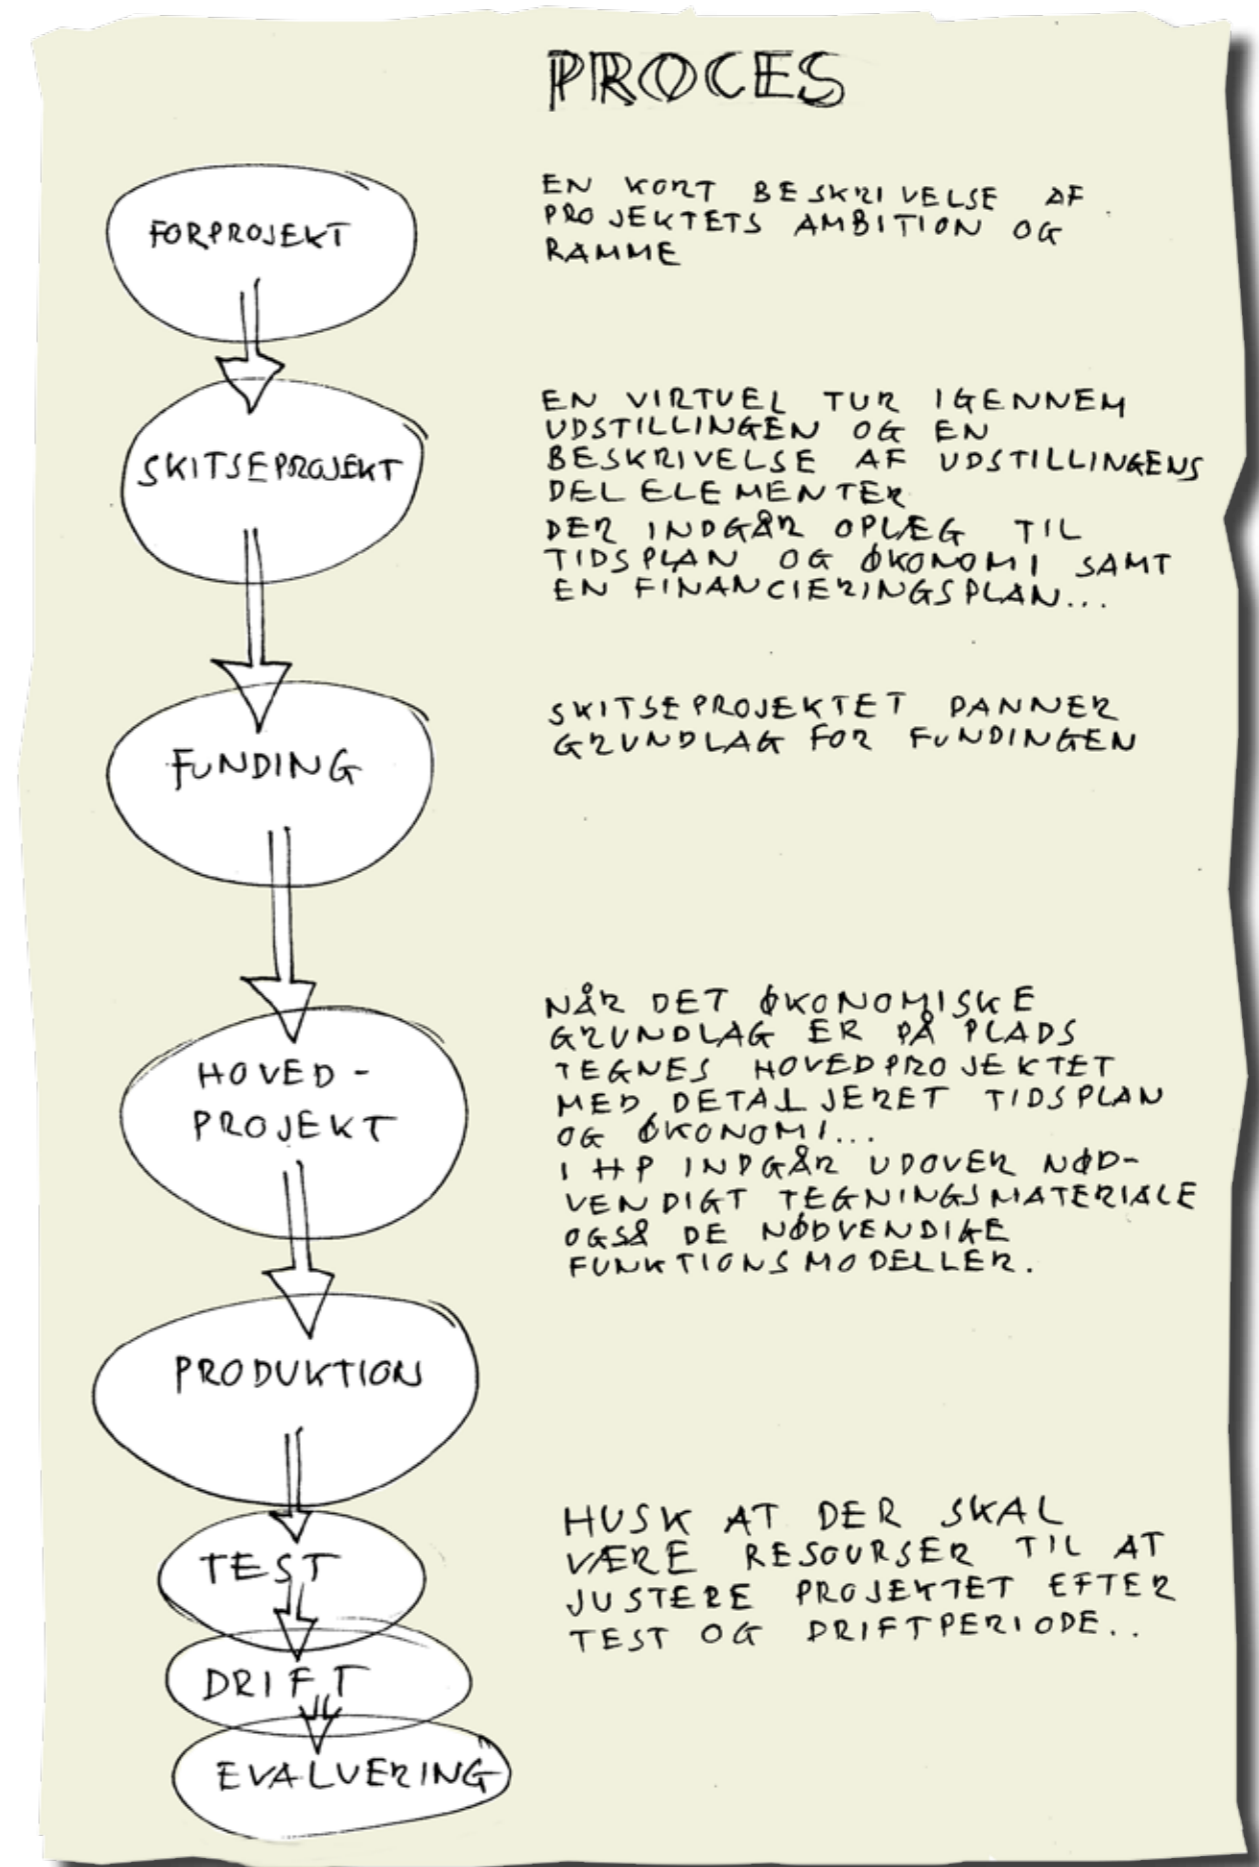 PROCES
FORPROJEKT
EN KORT BESKRIVELSE AF
PROJEKTETS AMBITION OG
RAMME
SKITSEPROJEKT
EN VIRTUEL TUR IGENNEM
UDSTILLINGEN OG EN
BESKRIVELSE AF UDSTILLINGENS
DELELEMENTER
DER INDGÅR OPLÆG TIL
TIDSPLAN OG ØKONOMI SAMT
EN FINANCIERINGSPLAN...
FUNDING
SKITSEPROJEKTET DANNER
GRUNDLAG FOR FUNDINGEN
HOVED-
PROJEKT
NÅR DET ØKONOMISKE
GRUNDLAG ER PÅ PLADS
TEGNES HOVEDPROJEKTET
MED DETALJERET TIDSPLAN
OG ØKONOMI...
I HP INDGÅR UDOVER NØD-
VENDIGT TEGNINGSMATERIALE
OGSÅ DE NØDVENDIGE
FUNKTIONSMODELLER.
PRODUKTION
TEST
DRIFT
EVALUERING
HUSK AT DER SKAL
VÆRE RESOURSER TIL AT
JUSTERE PROJEKTET EFTER
TEST OG DRIFTPERIODE..